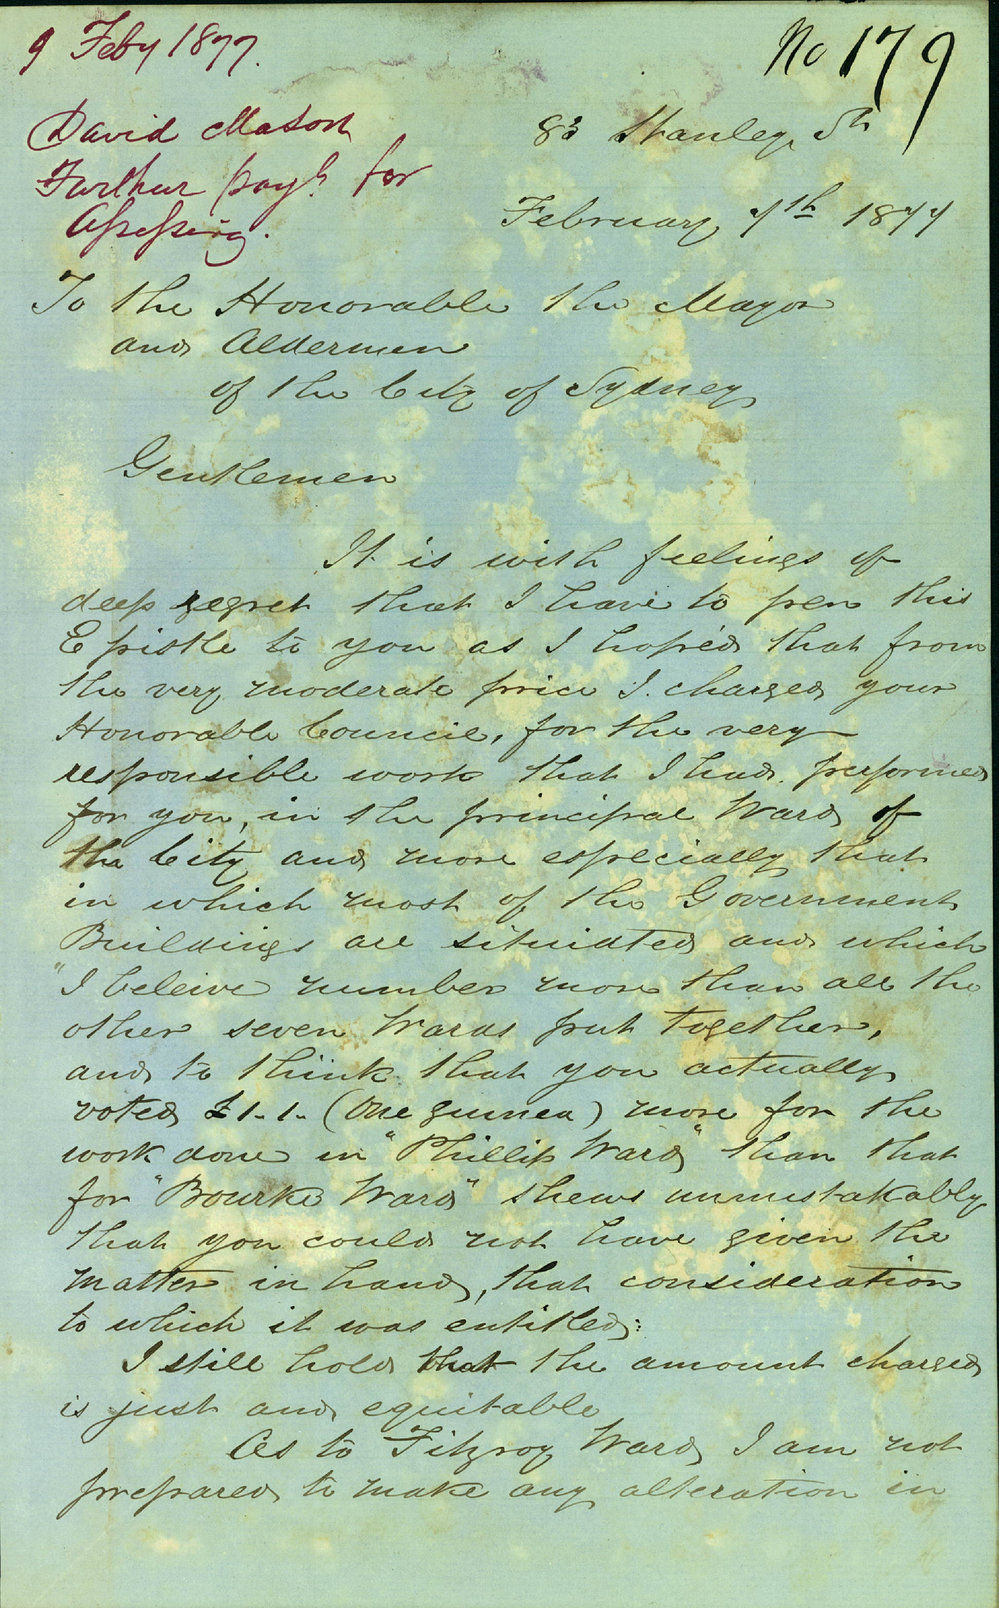 9 Feby 1877.
No 179
David Mason
Further payt. for
Assessing.
83 Stanley St
February 7th 1877
To the Honorable the Mayor
and Aldermen
of the City of Sydney
Gentlemen
It is with feelings of
deep regret that I have to pen this
Epistle to you as I hoped that from
the very moderate price I charged your
Honorable Council, for the very
responsible work that I had performed
for you, in the principal Ward of
the City and more especially that
in which most of the Government
Buildings are situated and which
"I beleive number more than all the
other seven Wards put together,
and to think that you actually
voted £1.1. (One guinea) more for the
work done in "Phillip Ward" than that
for "Bourke Ward" shews unmistakably
that you could not have given the
matter in hand, that consideration
to which it was entitled:
I still hold that the amount charged
is just and equitable
As to Fitzroy Ward I am not
prepared to make any alteration in